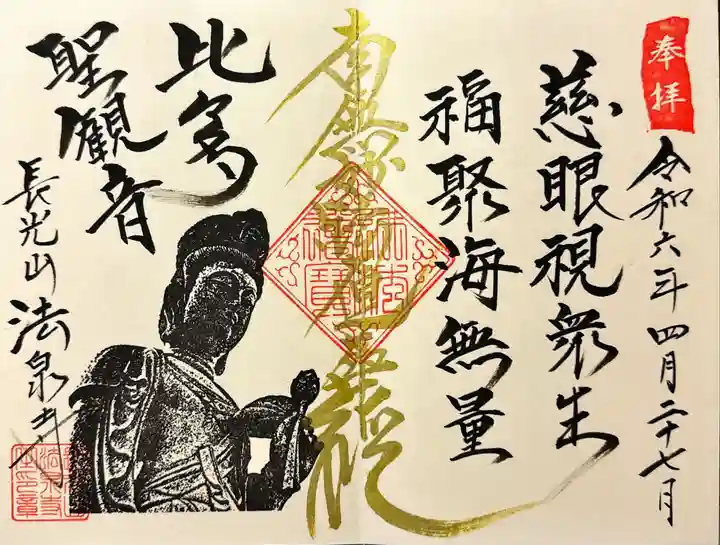 奉拝
令和六年四月二十七日
慈眼視衆生
福聚海無量
南無
聖観音
長光山 法泉寺